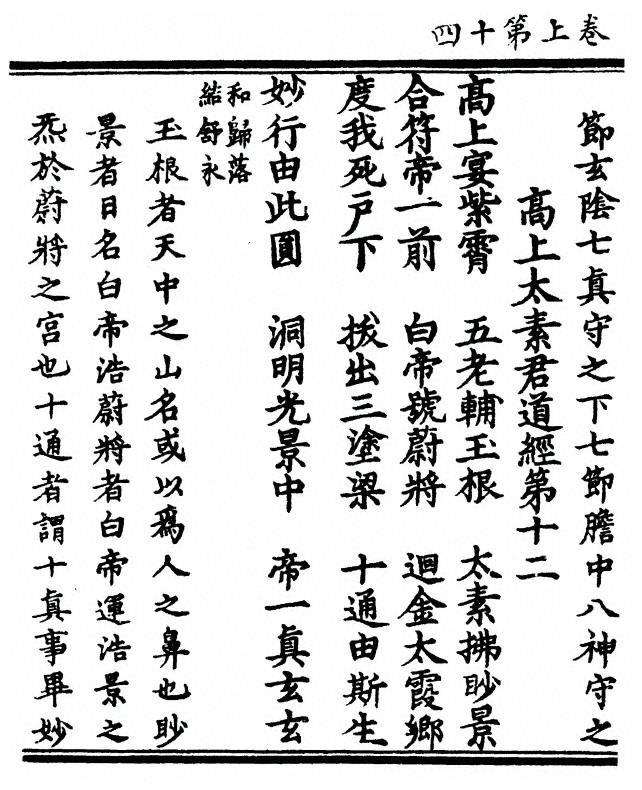 卷上第十四
節玄陰七真守之下七節膽中八神守之
高上太素君道經第十二
高上宴紫霄　五老輔玉根　太素拂眇景
合符帝一前　白帝號蔚將　迴金太霞鄉
度我死戶下　拔出三塗梁　十通由斯生
妙行由此圓　洞明光景中　帝一真玄玄
和歸落
結舒永
玉根者天中之山名或以爲人之鼻也眇
景者日名白帝浩蔚將者白帝運浩景之
炁於蔚將之宮也十通者謂十真事畢妙